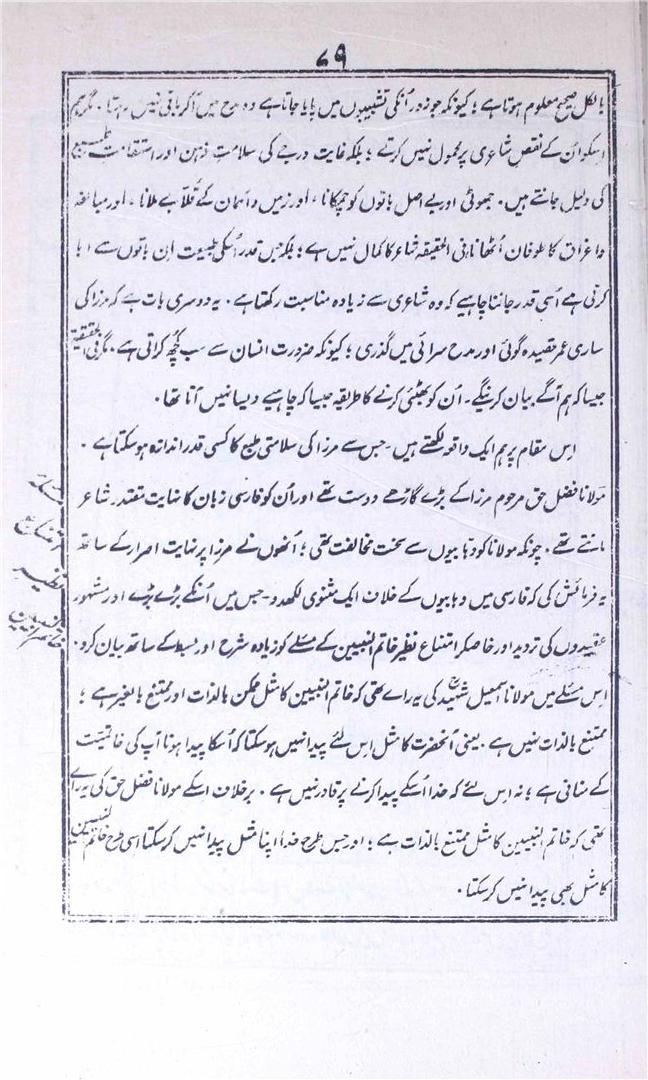 ۷۹
بالکل صحیح معلوم ہوتا ہے؛ کیونکہ جو زور اُنکی تشبیبوں میں پایا جاتا ہے وہ مدح میں آکر باقی نہیں رہتا۔ مگر ہم
اسکو اُن کے نقص شاعری پر محمول نہیں کرتے؛ بلکہ غایت درجے کی سلامتِ ذہن اور استقامتِ طبع
کی دلیل جانتے ہیں۔ جھوٹی اور بے اصل باتوں کو چمکانا، اور زمین و آسمان کے قلابے ملانا، اور مبالغہ
و اغراق کا طوفان اُٹھانا فی الحقیقۃ شاعر کا کمال نہیں ہے؛ بلکہ جس قدر اُسکی طبیعت ان باتوں سے ابا
کرتی ہے اُسی قدر جاننا چاہیے کہ وہ شاعری سے زیادہ مناسبت رکھتا ہے۔ یہ دوسری بات ہے کہ مرزا کی
ساری عمر قصیدہ گوئی اور مدح سرائی میں گذری؛ کیونکہ ضرورت انسان سے سب کچھ کراتی ہے۔ مگر فی الحقیقۃ
جیسا کہ ہم آگے بیان کرینگے۔ اُن کو بھٹئی کرنے کا طریقہ جیسا کہ چاہیے ویسا نہیں آتا تھا۔
اس مقام پر ہم ایک واقعہ لکھتے ہیں۔ جس سے مرزا کی سلامتی طبع کا کسی قدر اندازہ ہو سکتا ہے۔
مولانا فضل حق مرحوم مرزا کے بڑے گاڑھے دوست تھے اور اُن کو فارسی زبان کا نہایت مقتدر شاعر
مانتے تھے۔ چونکہ مولانا کو وہابیوں سے سخت مخالفت تھی؛ اُنھوں نے مرزا پر نہایت اصرار کے ساتھ
یہ فرمائش کی کہ فارسی میں وہابیوں کے خلاف ایک مثنوی لکھدو۔ جس میں اُنکے بڑے بڑے اور مشہور
عقیدوں کی تردید اور خاصکر امتناع نظیر خاتم النبیین کے مسئلے کو زیادہ شرح اور بسط کے ساتھ بیان کرو۔
اس مسئلے میں مولانا اسمٰعیل شہید کی یہ راے تھی کہ خاتم النبیین کا مثل ممکن بالذات اور ممتنع بالغیر ہے؛
ممتنع بالذات نہیں ہے۔ یعنی آنحضرت کا مثل اس لئے پیدا نہیں ہو سکتا کہ اُسکا پیدا ہونا آپ کی خاتمیت
کے منافی ہے؛ نہ اس لئے کہ خدا اُسکے پیدا کرنے پر قادر نہیں ہے۔ برخلاف اسکے مولانا فضل حق کی یہ راے
تھی کہ خاتم النبیین کا مثل ممتنع بالذات ہے؛ اور جس طرح خدا اپنا مثل پیدا نہیں کر سکتا اسی طرح خاتم النبیین
کا مثل بھی پیدا نہیں کر سکتا۔
مسئلہ
امتناع
نظیر
خاتم النبیین